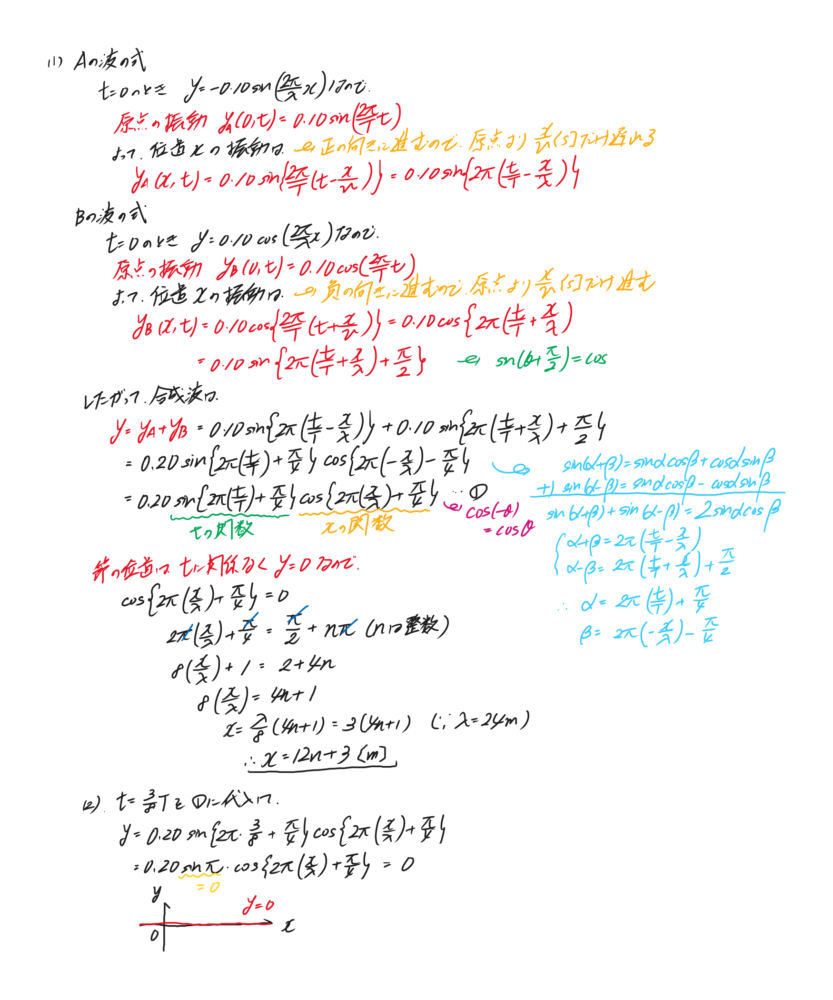 (1) Aの波の式
t=0のとき y=-0.10sin(2π/λ x)なので.
原点の振動 yA(0,t)=0.10sin(2π/T t)
よって. 位置xの振動は. → 正の向きに進むので. 原点より x/v [s]だけ遅れる
yA(x,t)=0.10sin{2π/T(t-x/v)}=0.10sin{2π(t/T-x/λ)}
Bの波の式
t=0のとき y=0.10cos(2π/λ x)なので.
原点の振動 yB(0,t)=0.10cos(2π/T t)
よって. 位置xの振動は. → 負の向きに進むので. 原点より x/v [s]だけ進む
yB(x,t)=0.10cos{2π/T(t+x/v)}=0.10cos{2π(t/T+x/λ)
=0.10sin{2π(t/T+x/λ)+π/2} → sin(θ+π/2)=cos
したがって. 合成波は.
y=yA+yB=0.10sin{2π(t/T-x/λ)}+0.10sin{2π(t/T+x/λ)+π/2}
=0.20sin{2π(t/T)+π/4}cos{2π(-x/λ)-π/4}
=0.20sin{2π(t/T)+π/4}cos{2π(x/λ)+π/4} …①
tの関数 xの関数
cos(-θ)
=cosθ
sin(α+β)=sinαcosβ+cosαsinβ
+) sin(α-β)=sinαcosβ-cosαsinβ
sin(α+β)+sin(α-β)=2sinαcosβ
{α+β=2π(t/T-x/λ)
α-β=2π(t/T+x/λ)+π/2
∴ α=2π(t/T)+π/4
β=2π(-x/λ)-π/4
節の位置は tに関係なく y=0なので.
cos{2π(x/λ)+π/4}=0
2π(x/λ)+π/4=π/2+nπ (nは整数)
8(x/λ)+1=2+4n
8(x/λ)=4n+1
x=λ/8(4n+1)=3(4n+1) (∵λ=24m)
∴x=12n+3 [m]
(2) t=3/8Tを①に代入して.
y=0.20sin{2π・3/8+π/4}cos{2π(x/λ)+π/4}
=0.20sinπ・cos{2π(x/λ)+π/4}=0
=0
y
y=0
0
x